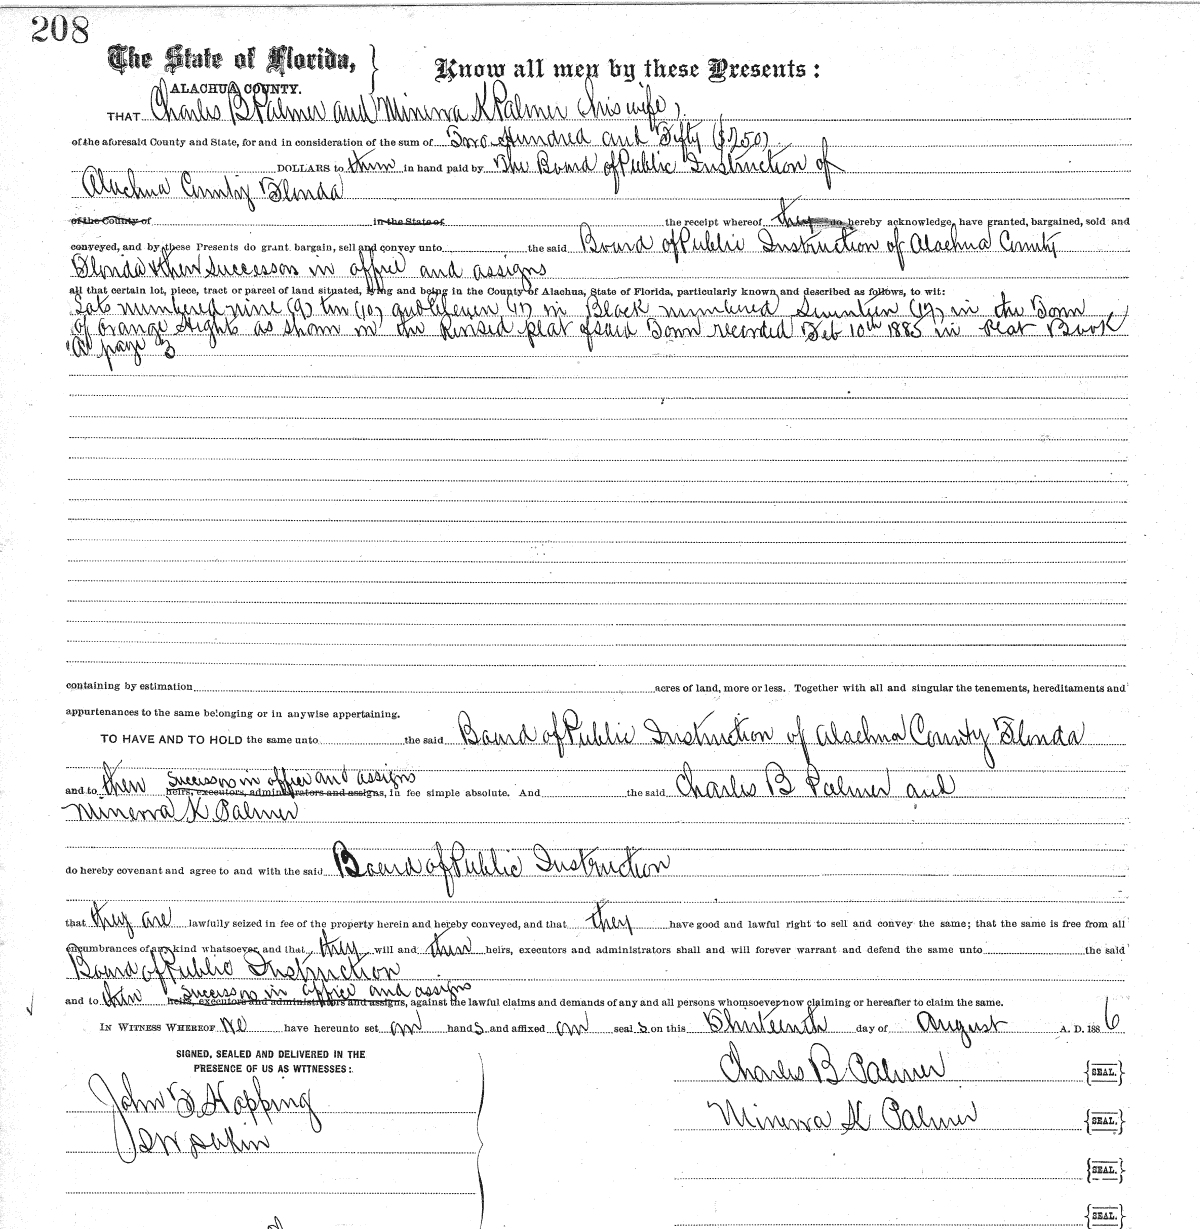 208
The State of Florida,
ALACHUA COUNTY.
Know all men by these Presents:
THAT Charles B Palmer and Minerva K Palmer (his wife),
of the aforesaid County and State, for and in consideration of the sum of Two Hundred and Fifty ($250)
DOLLARS to them in hand paid by The Board of Public Instruction of
Alachua County Florida
of the County of in the State of the receipt whereof they do hereby acknowledge, have granted, bargained, sold and
conveyed, and by these Presents do grant bargain, sell and convey unto the said Board of Public Instruction of Alachua County
Florida & their successors in office and assigns
all that certain lot, piece, tract or parcel of land situated, lying and being in the County of Alachua, State of Florida, particularly known and described as follows, to wit:
Lots numbered nine (9) ten (10) and Eleven (11) in Block numbered Seventeen (17) in the Town
of Orange Hights as shown in the Revised plat of said Town recorded Feb 10th 1885 in Plat Book
"A" page 3
containing by estimation acres of land, more or less. Together with all and singular the tenements, hereditaments and
appurtenances to the same belonging or in anywise appertaining.
TO HAVE AND TO HOLD the same unto the said Board of Public Instruction of Alachua County Florida
successors in office and assigns
and to their heirs, executors, administrators and assigns, in fee simple absolute. And the said Charles B Palmer and
Minerva K Palmer
do hereby covenant and agree to and with the said Board of Public Instruction
that they are lawfully seized in fee of the property herein and hereby conveyed, and that they have good and lawful right to sell and convey the same; that the same is free from all
encumbrances of any kind whatsoever, and that they will and their heirs, executors and administrators shall and will forever warrant and defend the same unto the said
Board of Public Instruction
successors in office and assigns
and to their heirs, executors and administrators and assigns, against the lawful claims and demands of any and all persons whomsoever now claiming or hereafter to claim the same.
IN WITNESS WHEREOF We have hereunto set our hands and affixed our seals on this Thirteenth day of August A. D. 1886
SIGNED, SEALED AND DELIVERED IN THE
PRESENCE OF US AS WITNESSES:
Charles B Palmer {SEAL.}
John F Hopping
Minerva K Palmer {SEAL.}
{SEAL.}
{SEAL.}